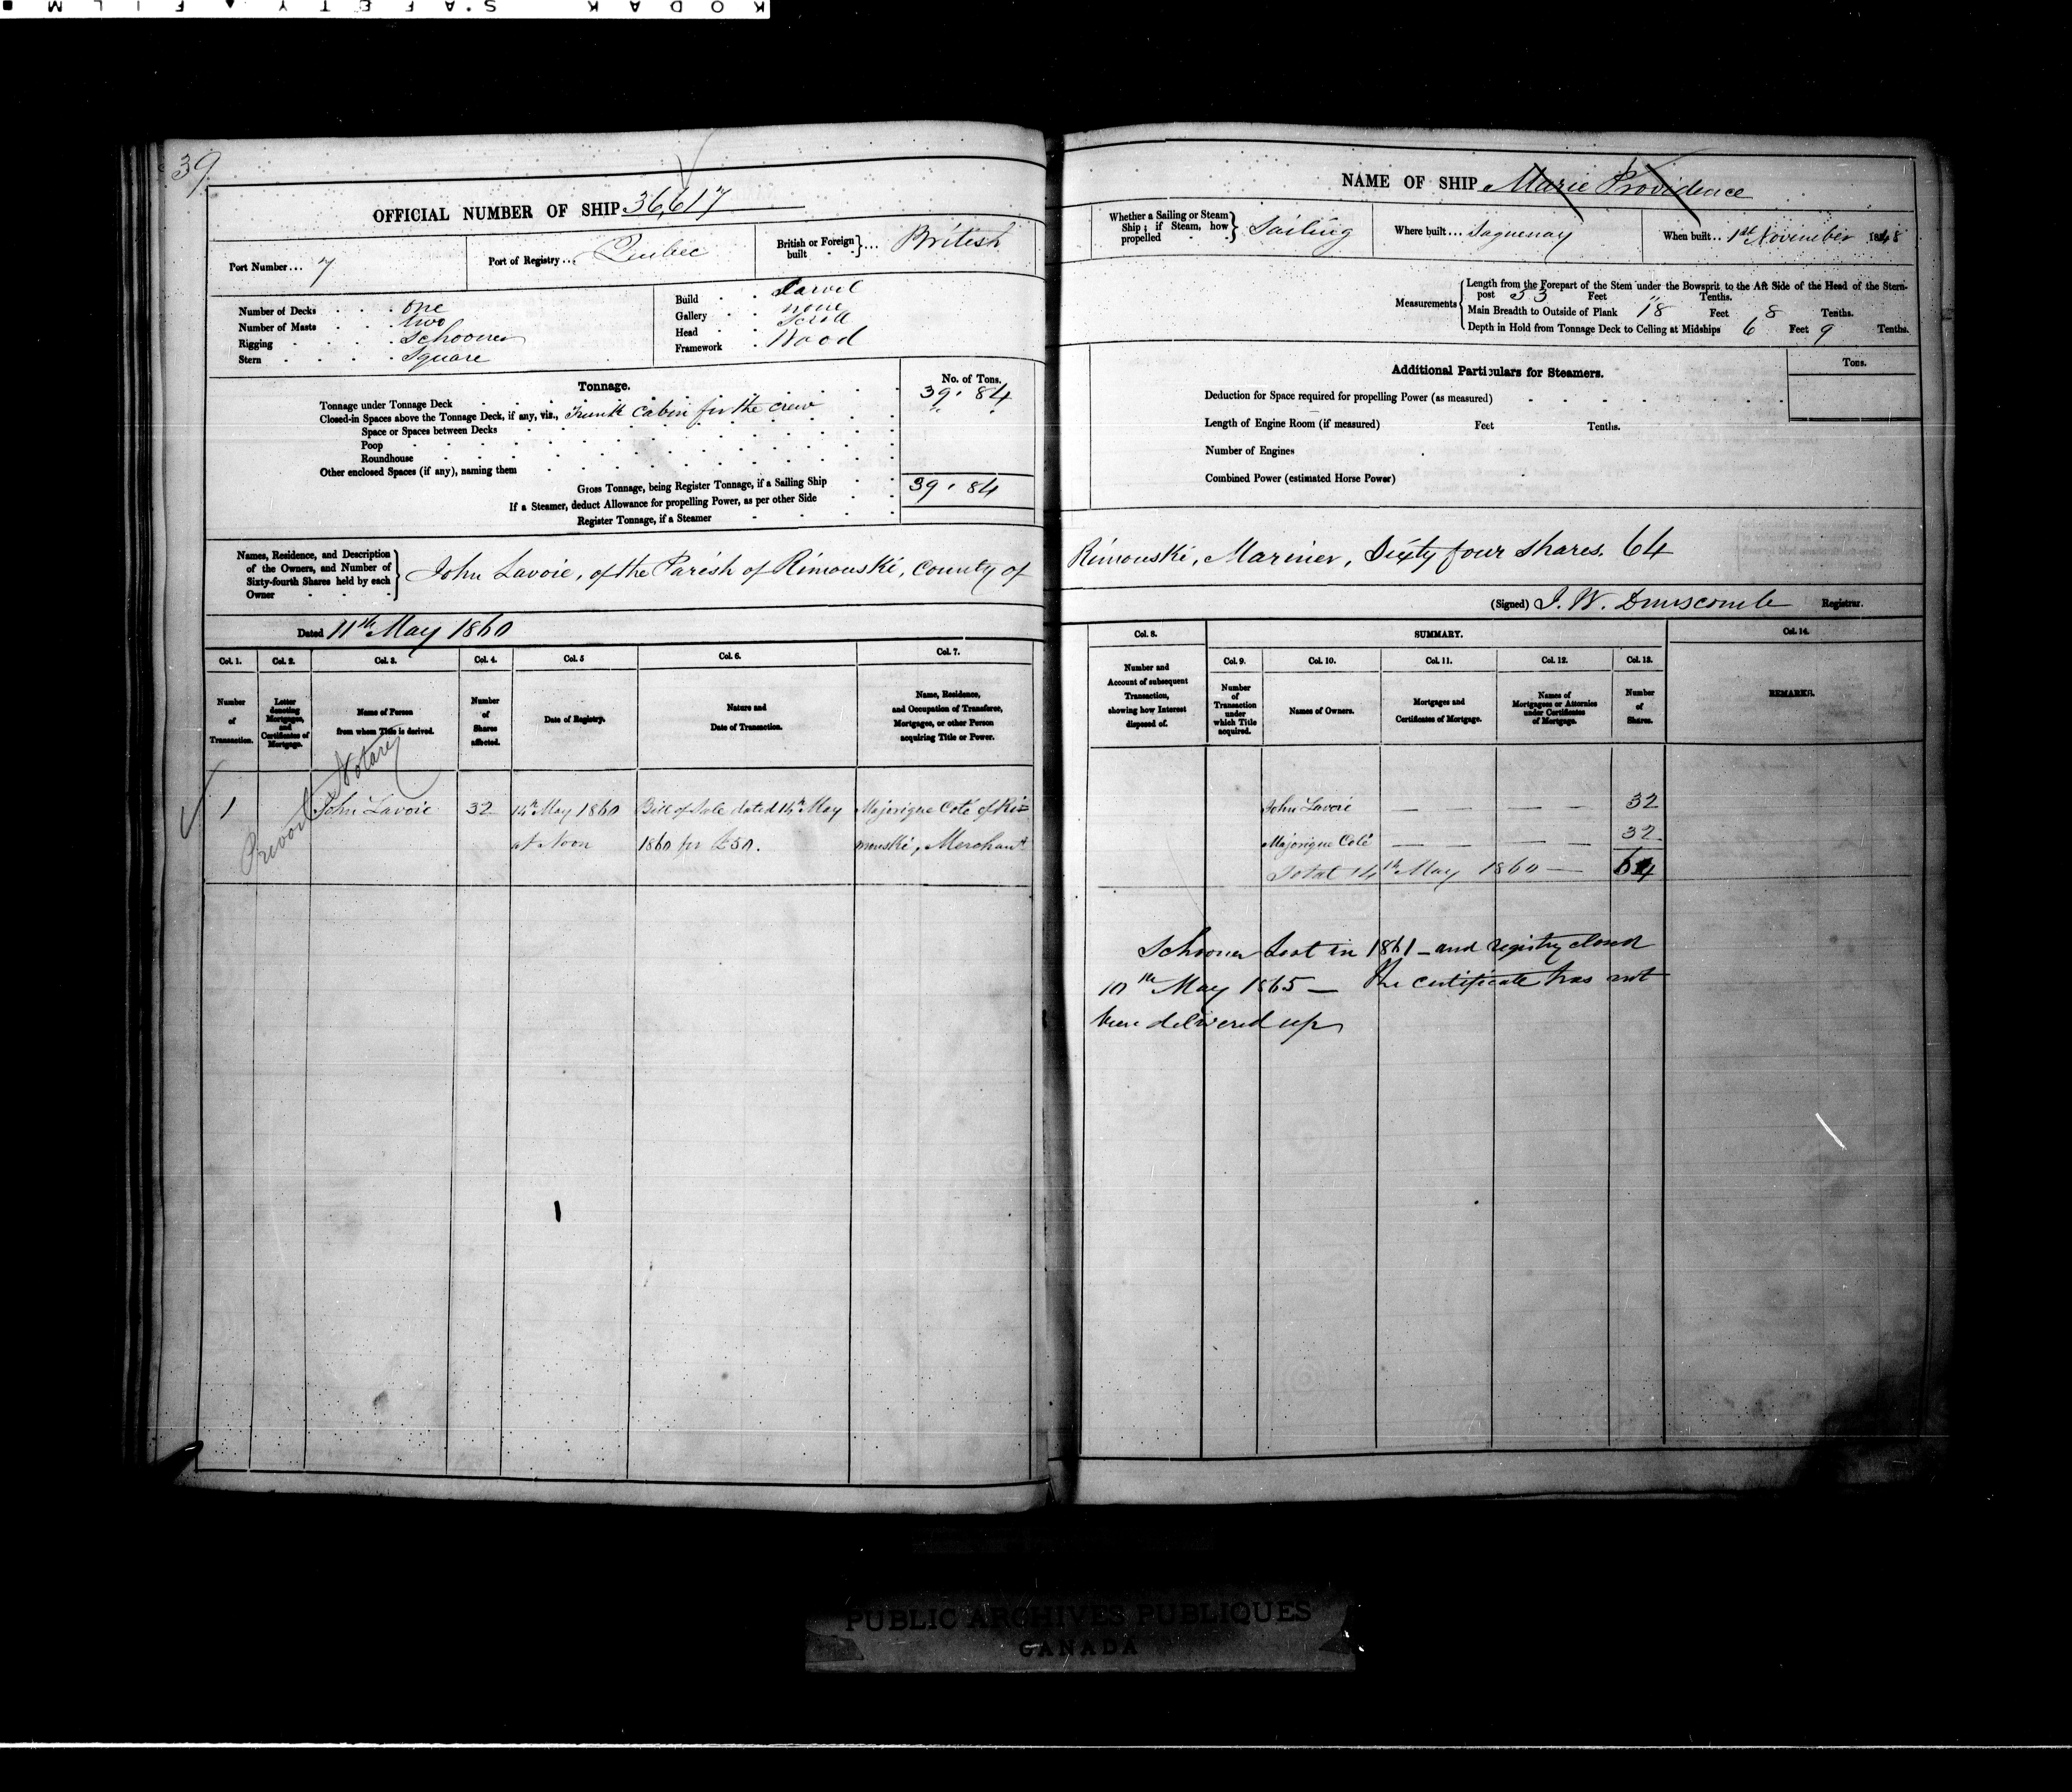 KODAK S.AFETY ▲ FILM ■
39
OFFICIAL NUMBER OF SHIP 36,617
Port Number... 7
Port of Registry... Quebec
British or Foreign built } ... British
Number of Decks . . . . one
Number of Masts . . . . two
Rigging . . . . Schooner
Stern . . . . Square
Build . . Carvel
Gallery . . none
Head . . Scroll
Framework . Wood
Tonnage.
No. of Tons.
Tonnage under Tonnage Deck 39.84
Closed-in Spaces above the Tonnage Deck, if any, viz., Trunk Cabin for the crew " "
Space or Spaces between Decks
Poop
Roundhouse
Other enclosed Spaces (if any), naming them
Gross Tonnage, being Register Tonnage, if a Sailing Ship 39.84
If a Steamer, deduct Allowance for propelling Power, as per other Side
Register Tonnage, if a Steamer
Names, Residence, and Description
of the Owners, and Number of
Sixty-fourth Shares held by each
Owner
John Lavoie, of the Parish of Rimouski, County of
Dated 11th May 1860
Col. 1. Col. 2. Col. 3. Col. 4. Col. 5 Col. 6. Col. 7.
Number of Transaction.
Letter denoting Mortgages, and Certificates of Mortgage.
Name of Person from whom Title is derived.
Number of Shares affected.
Date of Registry.
Nature and Date of Transaction.
Name, Residence, and Occupation of Transferee, Mortgagee, or other Person acquiring Title or Power.
Notary
1 John Lavoie 32 14th May 1860 Bill of Sale dated 14th May Majorique Coté of Ri=
at Noon 1860 for £50. mouski, Merchant
NAME OF SHIP Marie Providence
Whether a Sailing or Steam Ship; if Steam, how propelled } Sailing
Where built... Saguenay
When built.. 1st November 1848
Measurements
Length from the Forepart of the Stem under the Bowsprit to the Aft Side of the Head of the Stern-
post 53 Feet " Tenths.
Main Breadth to Outside of Plank 18 Feet 8 Tenths.
Depth in Hold from Tonnage Deck to Ceiling at Midships 6 Feet 9 Tenths.
Additional Particulars for Steamers.
Tons.
Deduction for Space required for propelling Power (as measured)
Length of Engine Room (if measured) Feet Tenths.
Number of Engines
Combined Power (estimated Horse Power)
Rimouski, Mariner, Sixty four shares. 64
(Signed) J. W. Dunscomb Registrar.
Col. 8. SUMMARY. Col. 14.
Col. 9. Col. 10. Col. 11. Col. 12. Col. 13.
Number and Account of subsequent Transaction, showing how Interest disposed of.
Number of Transaction under which Title acquired.
Names of Owners.
Mortgages and Certificates of Mortgage.
Names of Mortgagees or Attornies under Certificates of Mortgage.
Number of Shares.
REMARKS.
John Lavoie — — — — 32
Majorique Coté — — — — 32
Total 14th May 1860 — 64
Schooner lost in 1861 – and registry closed
10th May 1865 — The certificate has not
been delivered up
PUBLIC ARCHIVES PUBLIQUES
CANADA